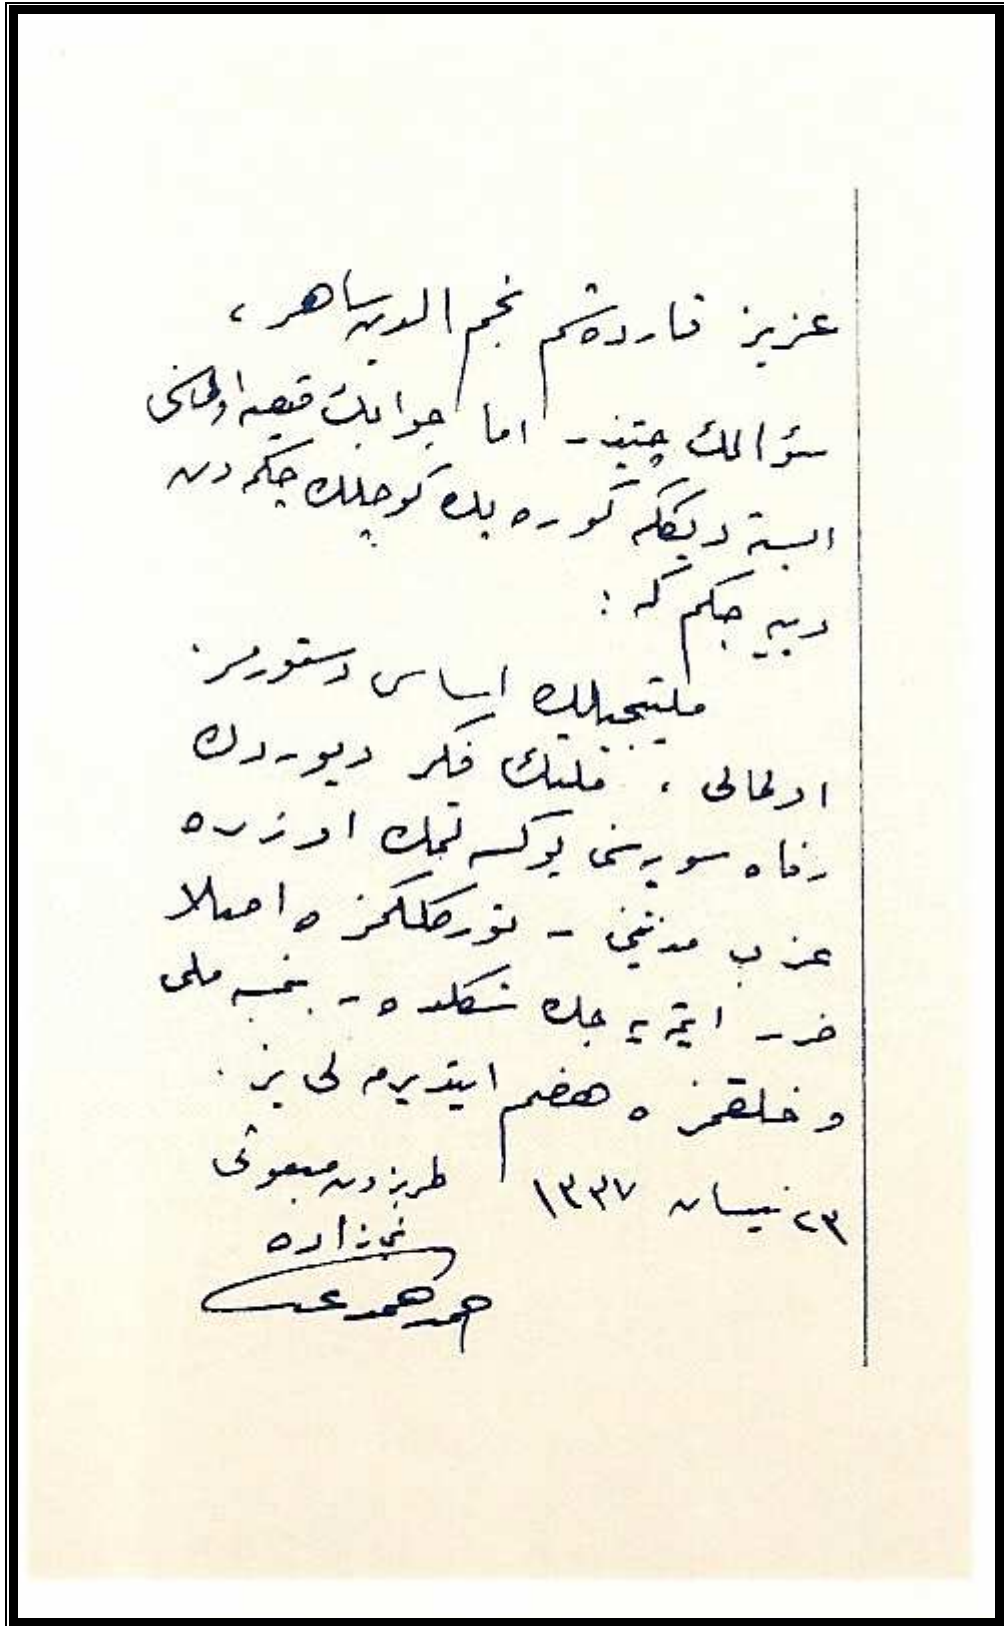 عزیز قارده‌شم نجم الدین ساهر ،
سؤالك چتین - اما جوابك قیصه اولماسنی
ایسته دیككه گوره پك گوچلك چكمه دن
دییه جكم كه :
ملیتجیلك اساس دستورمز
اولمالی ، ملتك فكر و یوردك
رفاه سویه‌سنی یوكسه‌لتمك اوزره
غرب مدنیتنی - تورككلكمزه اصلا
ضرر ایتمه‌یه جك شكلده -
و خلقمزه هضم ایتدیرمه لی یز .
٢٣ نیسان ١٣٣٧ طربزون مبعوثی
زاده